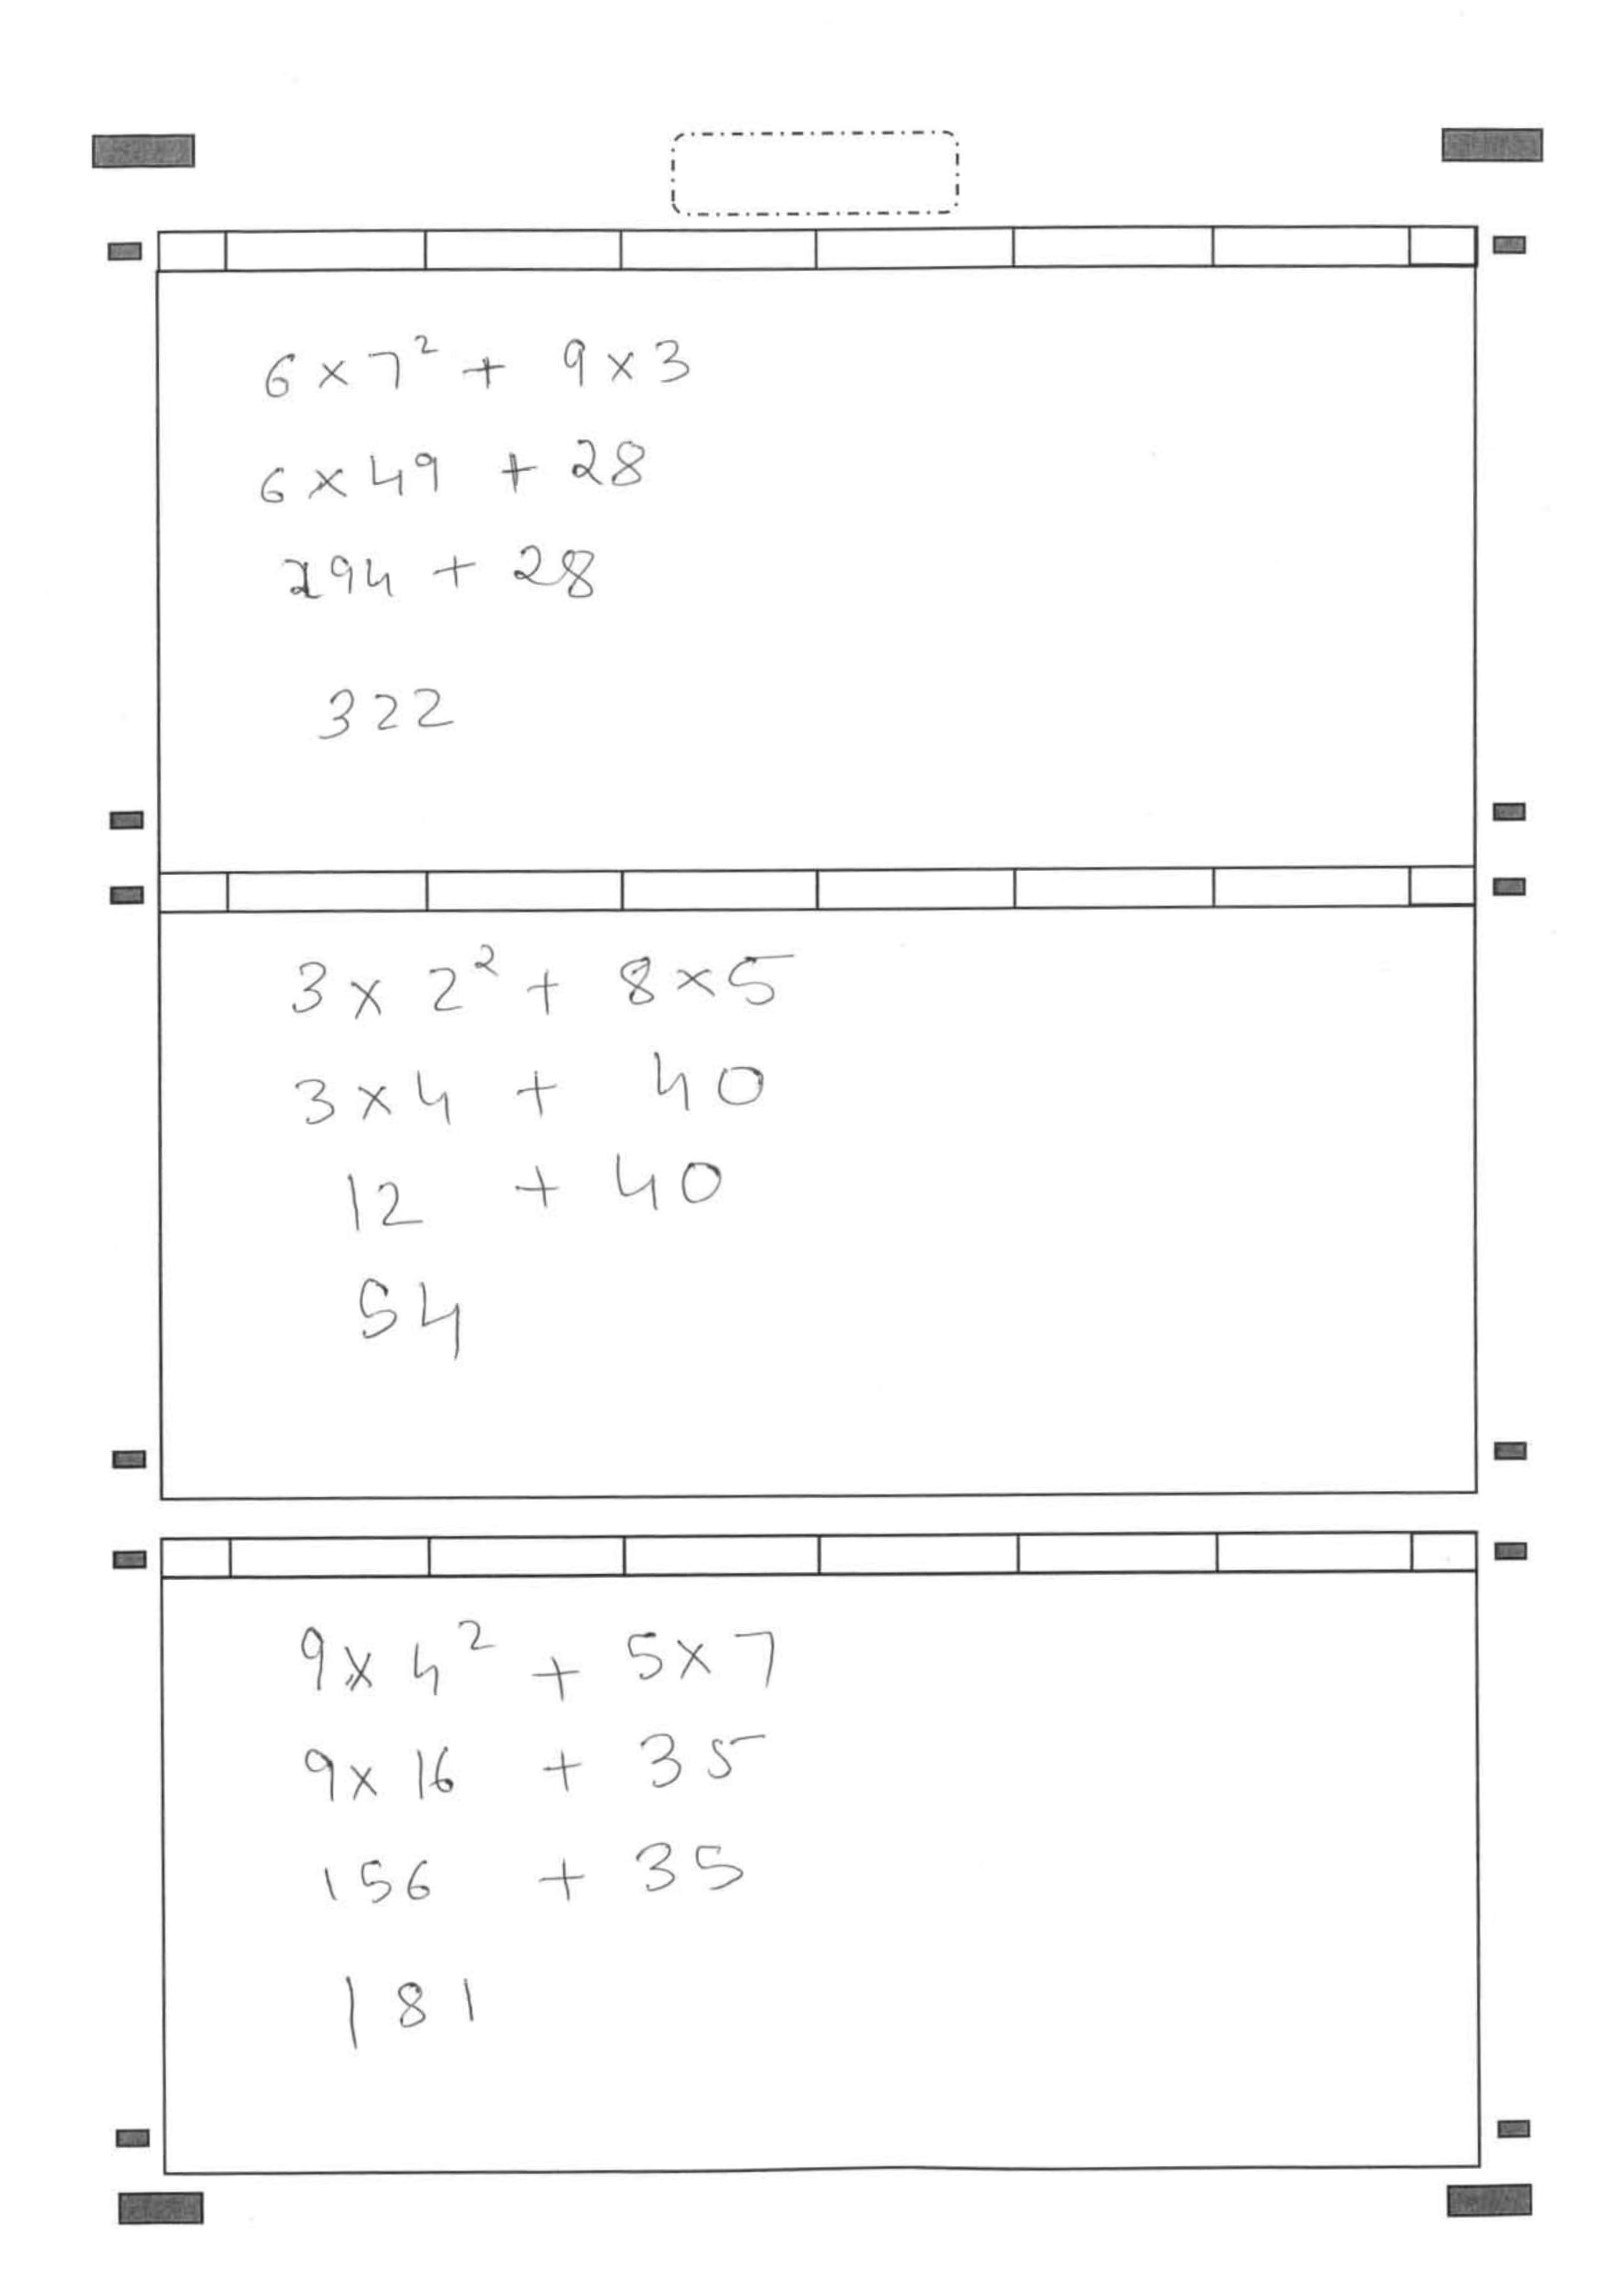 6 × 7² + 9 × 3
6 × 49 + 28
294 + 28
322
3 × 2² + 8 × 5
3 × 4 + 40
12 + 40
54
9 × 4² + 5 × 7
9 × 16 + 35
156 + 35
181